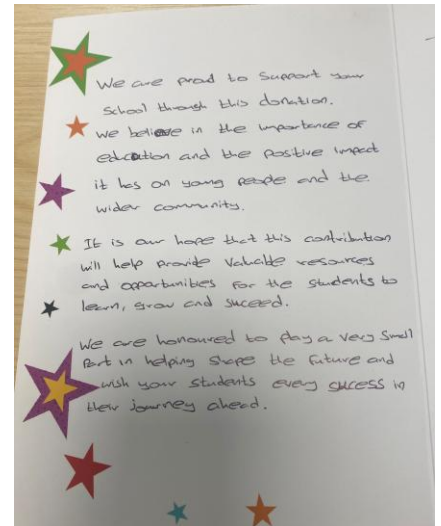 We are proud to support your
school through this donation.
We believe in the importance of
education and the positive impact
it has on young people and the
wider community.
It is our hope that this contribution
will help provide valuable resources
and opportunities for the students to
learn, grow and succed.
We are honoured to play a very small
part in helping shape the future and
wish your students every success in
their journey ahead.